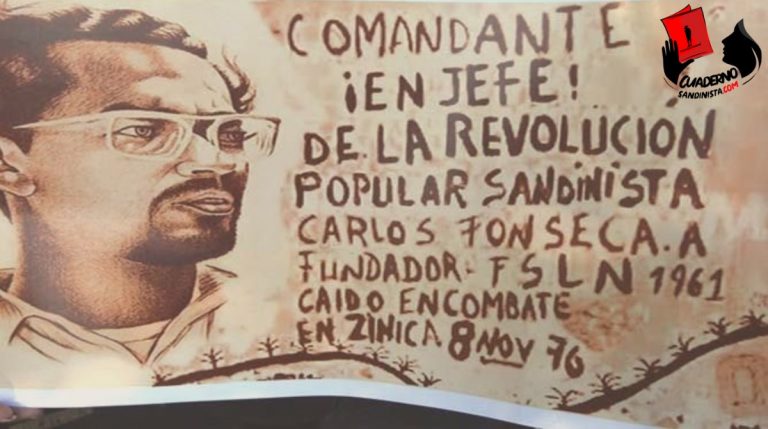 COMANDANTE
¡EN JEFE!
DE LA REVOLUCIÓN
POPULAR SANDINISTA
CARLOS FONSECA. A
FUNDADOR. FSLN 1961
CAIDO EN COMBATE
EN ZINICA 8 NOV 76
CUADERNO
SANDINISTA.COM